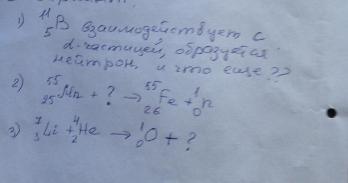 1) ¹¹₅B взаимодействует с
α-частицей, образуется
нейтрон. и что еще??
2) ⁵⁵₂₅Mn + ? → ⁵⁵₂₆Fe + ¹₀n
3) ⁷₃Li + ⁴₂He → ¹₀O + ?